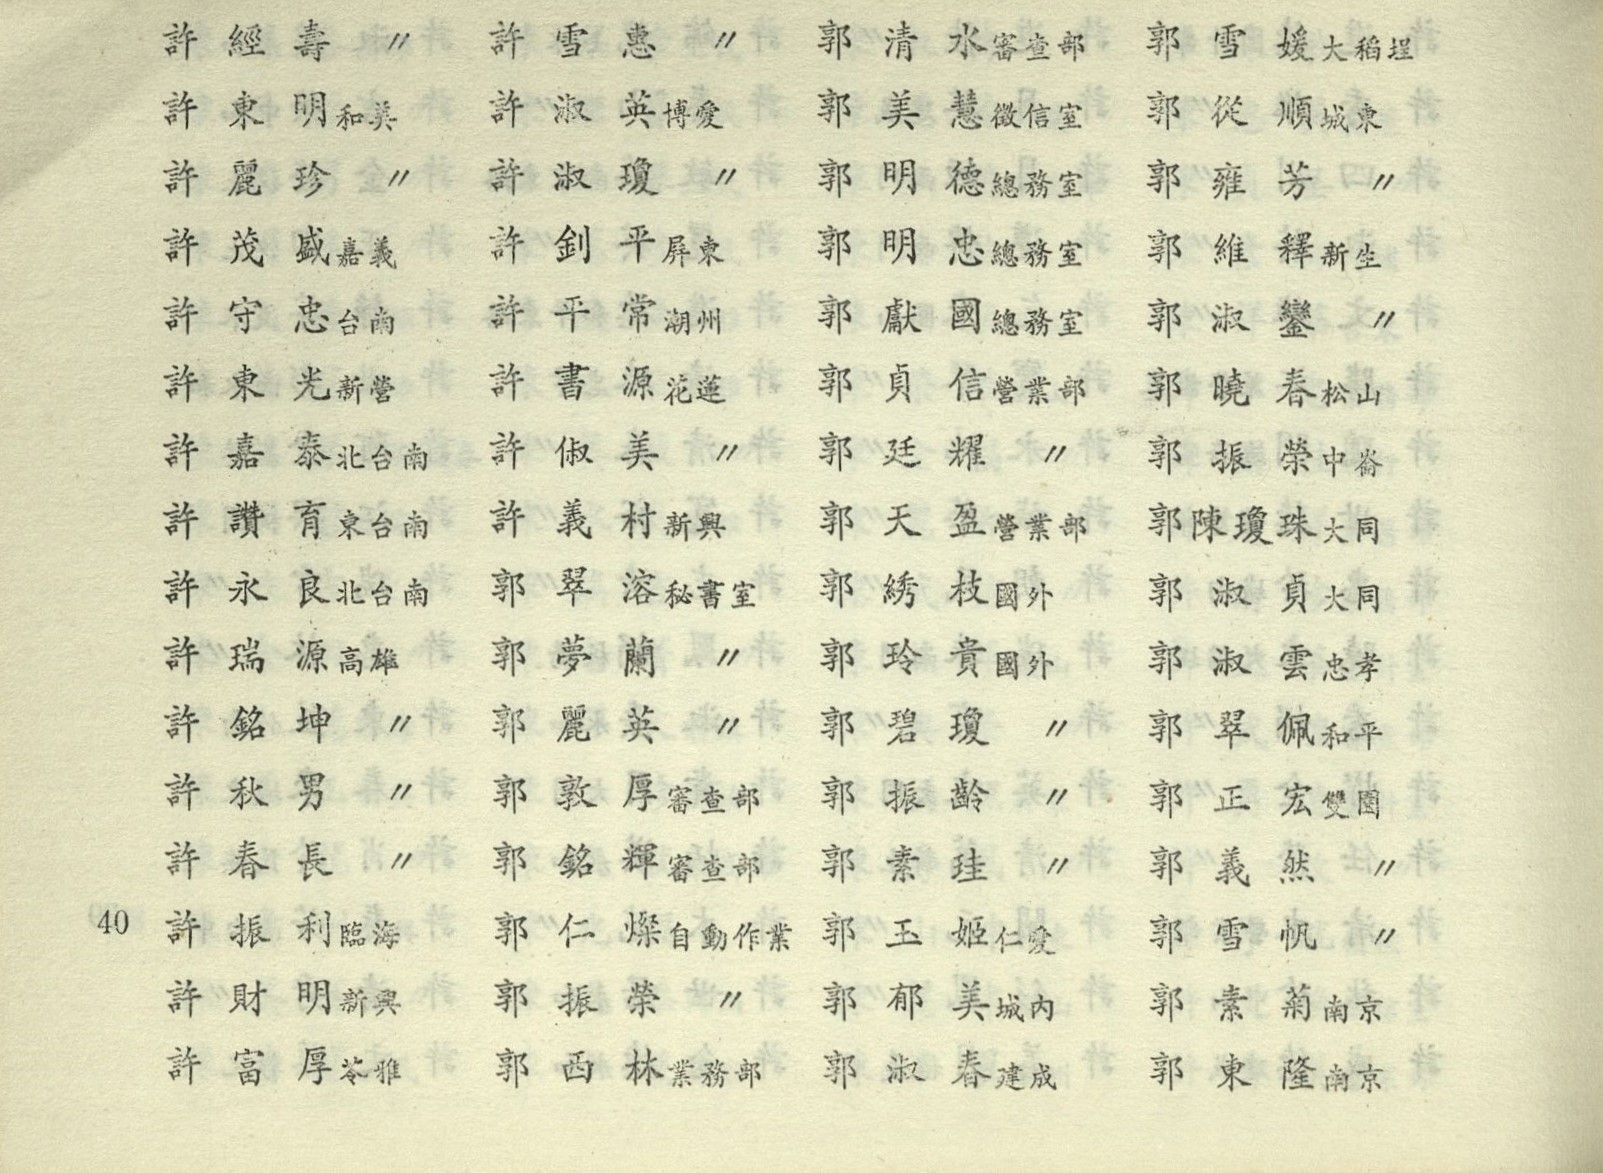 許經壽 〃 許雪惠 〃 郭清水審查部 郭雪媛大稻埕
許東明和美 許淑英博愛 郭美慧徵信室 郭從順城東
許麗珍 〃 許淑瓊 〃 郭明德總務室 郭雍芳 〃
許茂盛嘉義 許釗平屏東 郭明忠總務室 郭維釋新生
許守忠台南 許平常潮州 郭獻國總務室 郭淑鑾 〃
許東光新營 許書源花蓮 郭貞信營業部 郭曉春松山
許嘉泰北台南 許俶美 〃 郭廷耀 〃 郭振榮中崙
許讚育東台南 許義村新興 郭天盈營業部 郭陳瓊珠大同
許永良北台南 郭翠溶秘書室 郭綉枝國外 郭淑貞大同
許瑞源高雄 郭夢蘭 〃 郭玲貴國外 郭淑雲忠孝
許銘坤 〃 郭麗英 〃 郭碧瓊 〃 郭翠佩和平
許秋男 〃 郭敦厚審查部 郭振齡 〃 郭正宏雙園
許春長 〃 郭銘輝審查部 郭素珪 〃 郭義然 〃
40 許振利臨海 郭仁燦自動作業 郭玉姬仁愛 郭雪帆 〃
許財明新興 郭振榮 〃 郭郁美城內 郭素菊南京
許富厚苓雅 郭西林業務部 郭淑春建成 郭東隆南京